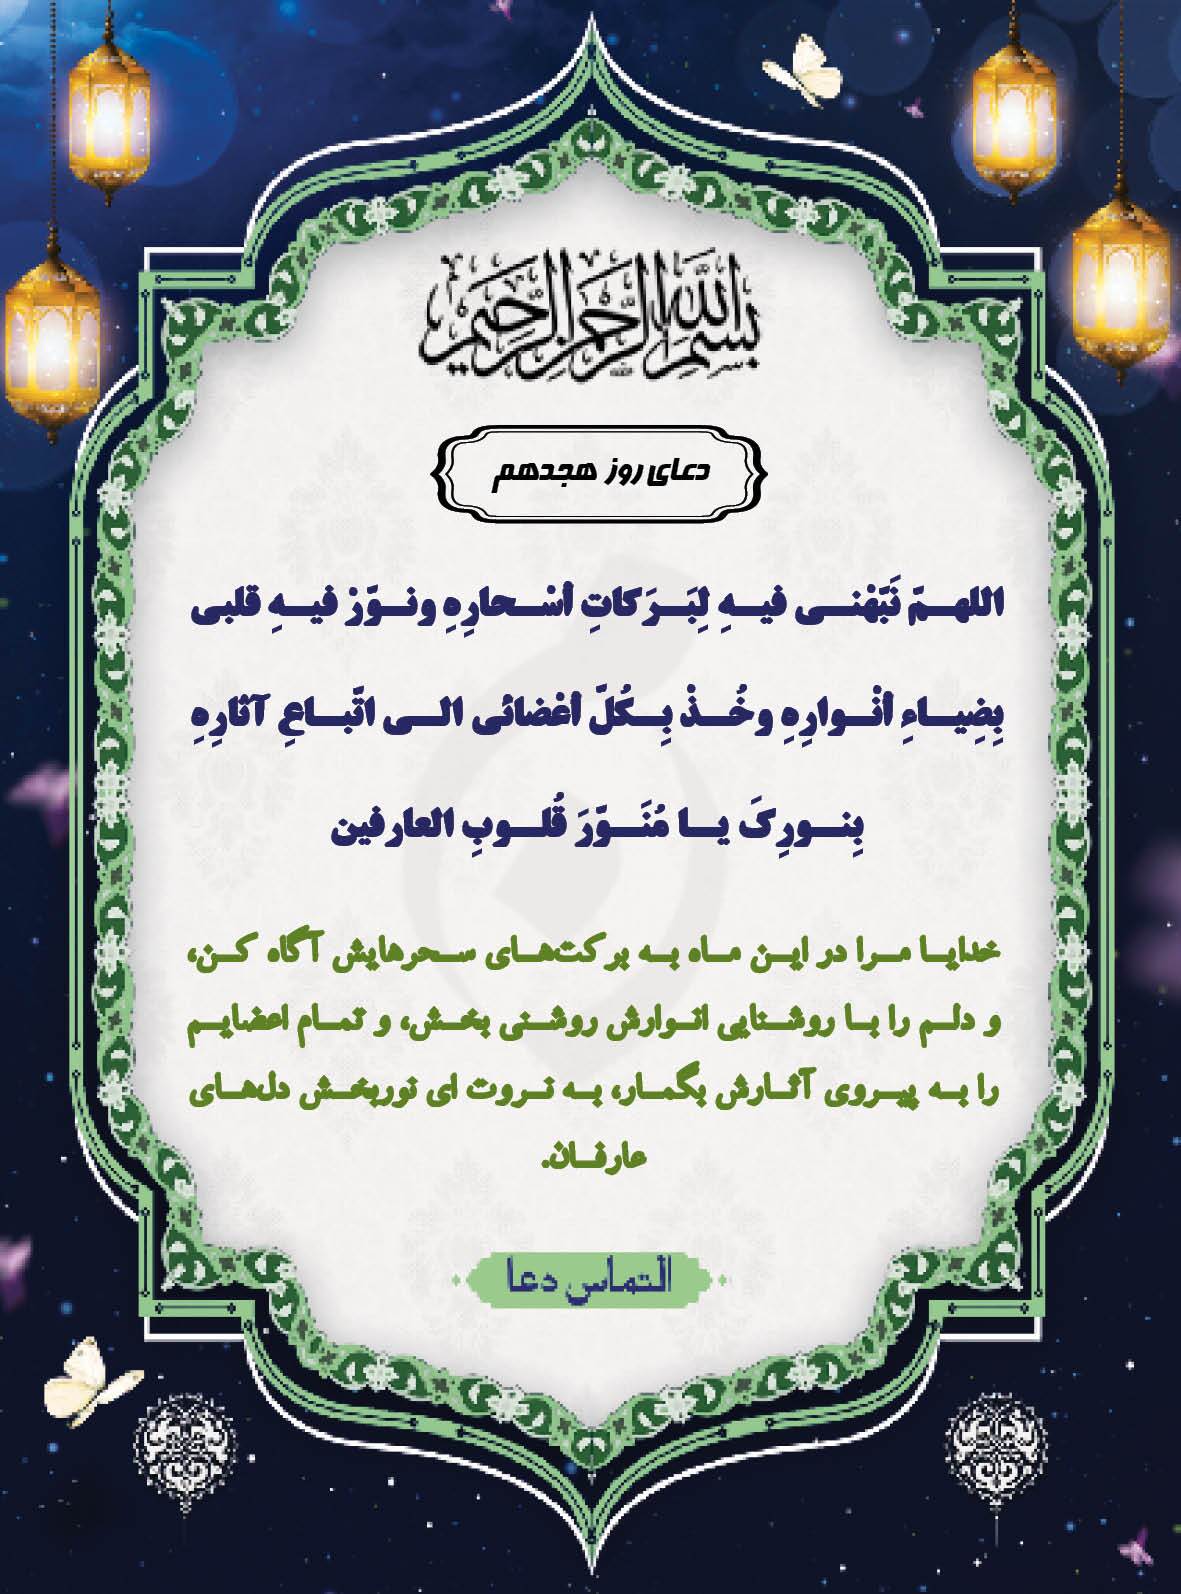 بسم الله الرحمن الرحیم
دعای روز هجدهم
اللهمّ نَبّهْنی فیهِ لِبَرَکاتِ أسْحارِهِ ونوّرْ فیهِ قلبی
بِضِیاءِ أنْوارِهِ وخُذْ بِکُلّ أعْضائی الی اتّباعِ آثارِهِ
بِنورِکَ یا مُنَوّرَ قُلوبِ العارفین
خدایا مرا در این ماه به برکت‌های سحرهایش آگاه کن،
و دلم را با روشنایی انوارش روشنی بخش، و تمام اعضایم
را به پیروی آثارش بگمار، به نروت ای نوربخش دل‌های
عارفان.
التماس دعا